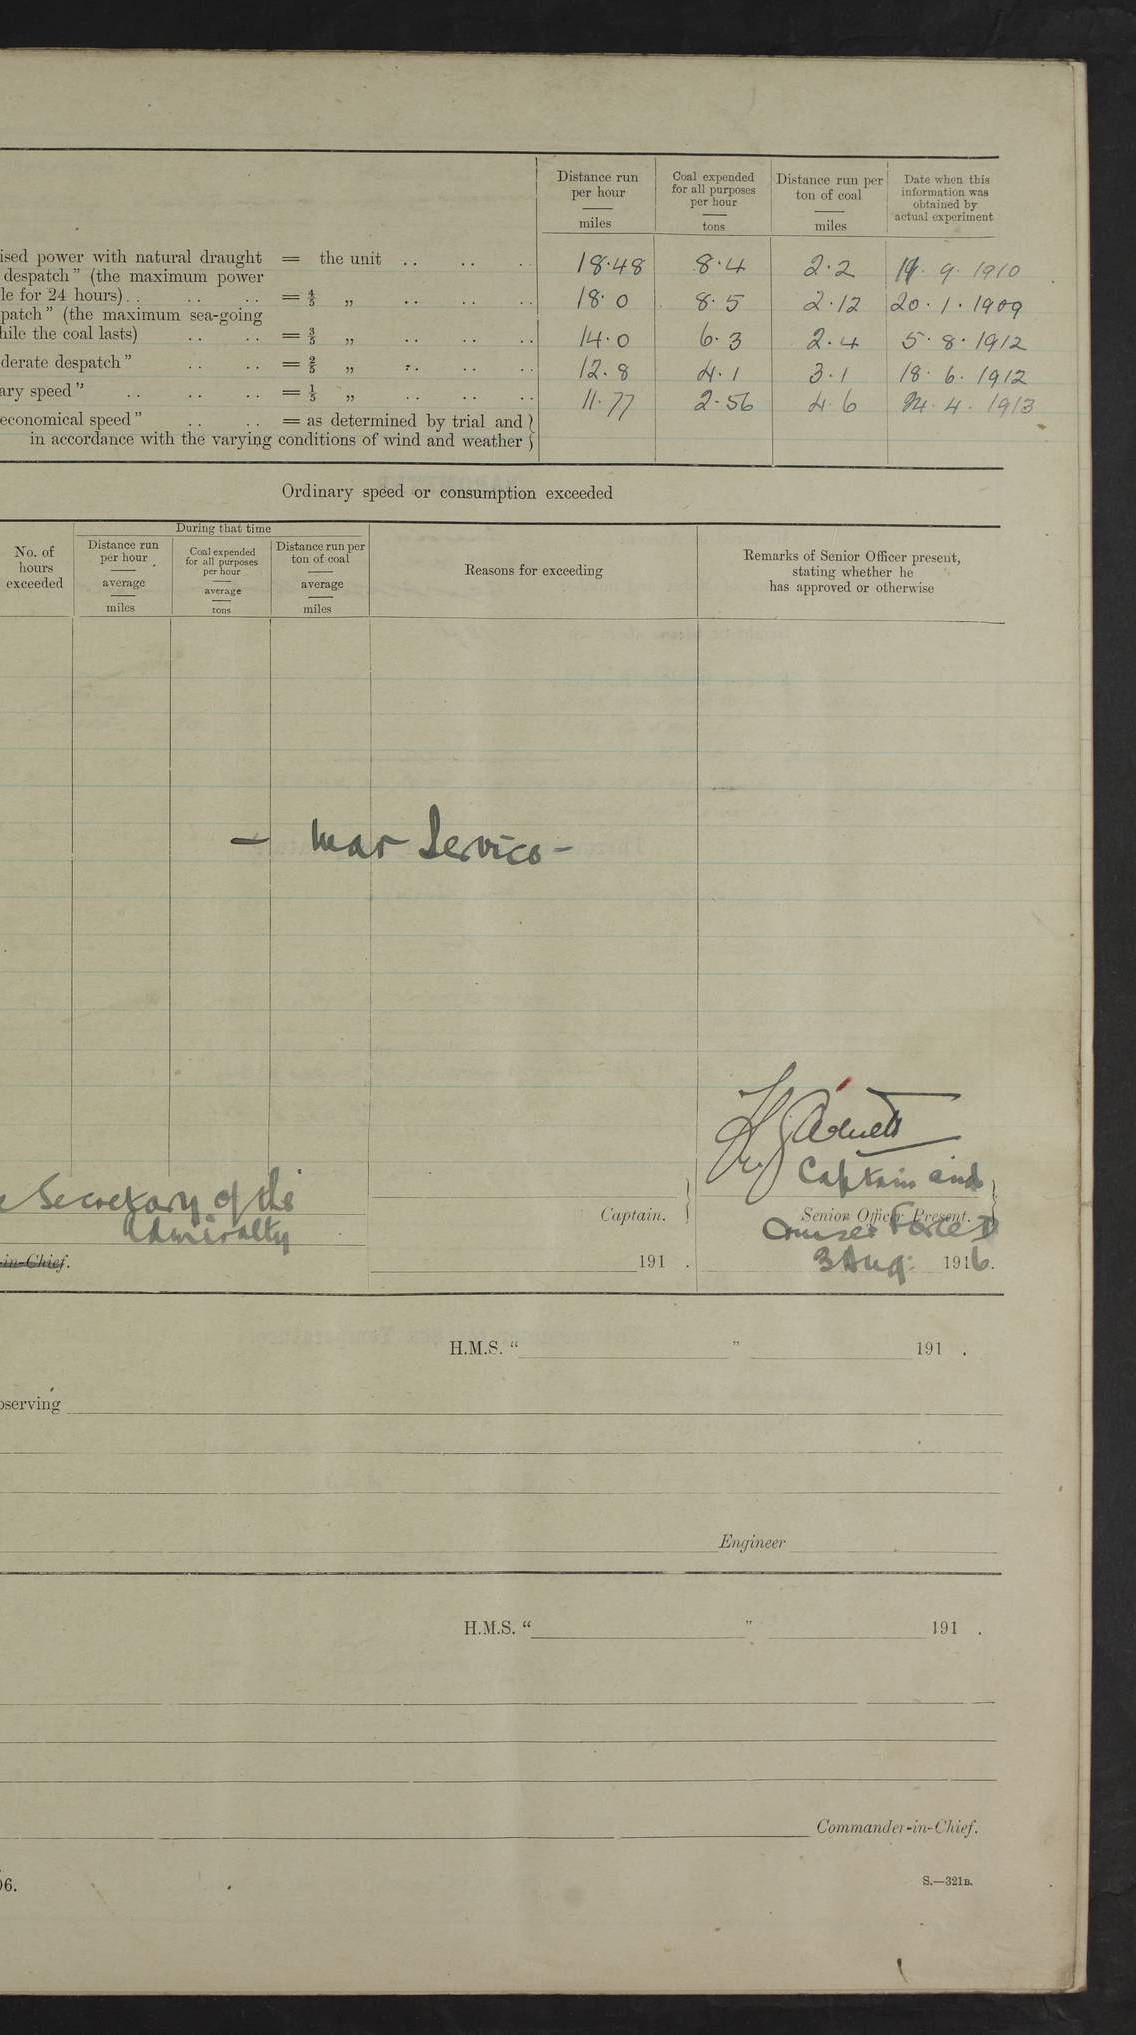 Distance run per hour
miles
Coal expended for all purposes per hour
tons
Distance run per ton of coal
miles
Date when this information was obtained by actual experiment
ised power with natural draught = the unit .. .. .. 18.48 8.4 2.2 9. 1910
despatch" (the maximum power
le for 24 hours) .. .. .. = 4/5 „ .. .. .. 18.0 8.5 2.12 20.1.1909
patch" (the maximum sea-going
hile the coal lasts) .. .. = 3/5 „ .. .. .. 14.0 6.3 2.4 5.8.1912
derate despatch" .. .. = 2/5 „ .. .. .. 12.8 4.1 3.1 18.6.1912
ary speed" .. .. .. = 1/5 „ .. .. .. 11.77 2.56 4.6 4. 1913
economical speed" .. .. = as determined by trial and }
in accordance with the varying conditions of wind and weather }
Ordinary speed or consumption exceeded
No. of hours exceeded
During that time
Distance run per hour
average
miles
Coal expended for all purposes per hour
average
tons
Distance run per ton of coal
average
miles
Reasons for exceeding
Remarks of Senior Officer present, stating whether he has approved or otherwise
- War Service -
Captain and
Secretary of the
Admiralty
Captain. }
Senior Officer Present. }
Cruiser Force D
in-Chief.
191 .
3 Aug: 1916.
H.M.S. " " 191 .
bserving
Engineer
H.M.S. " " 191 .
Commander-in-Chief.
06.
S.—321B.